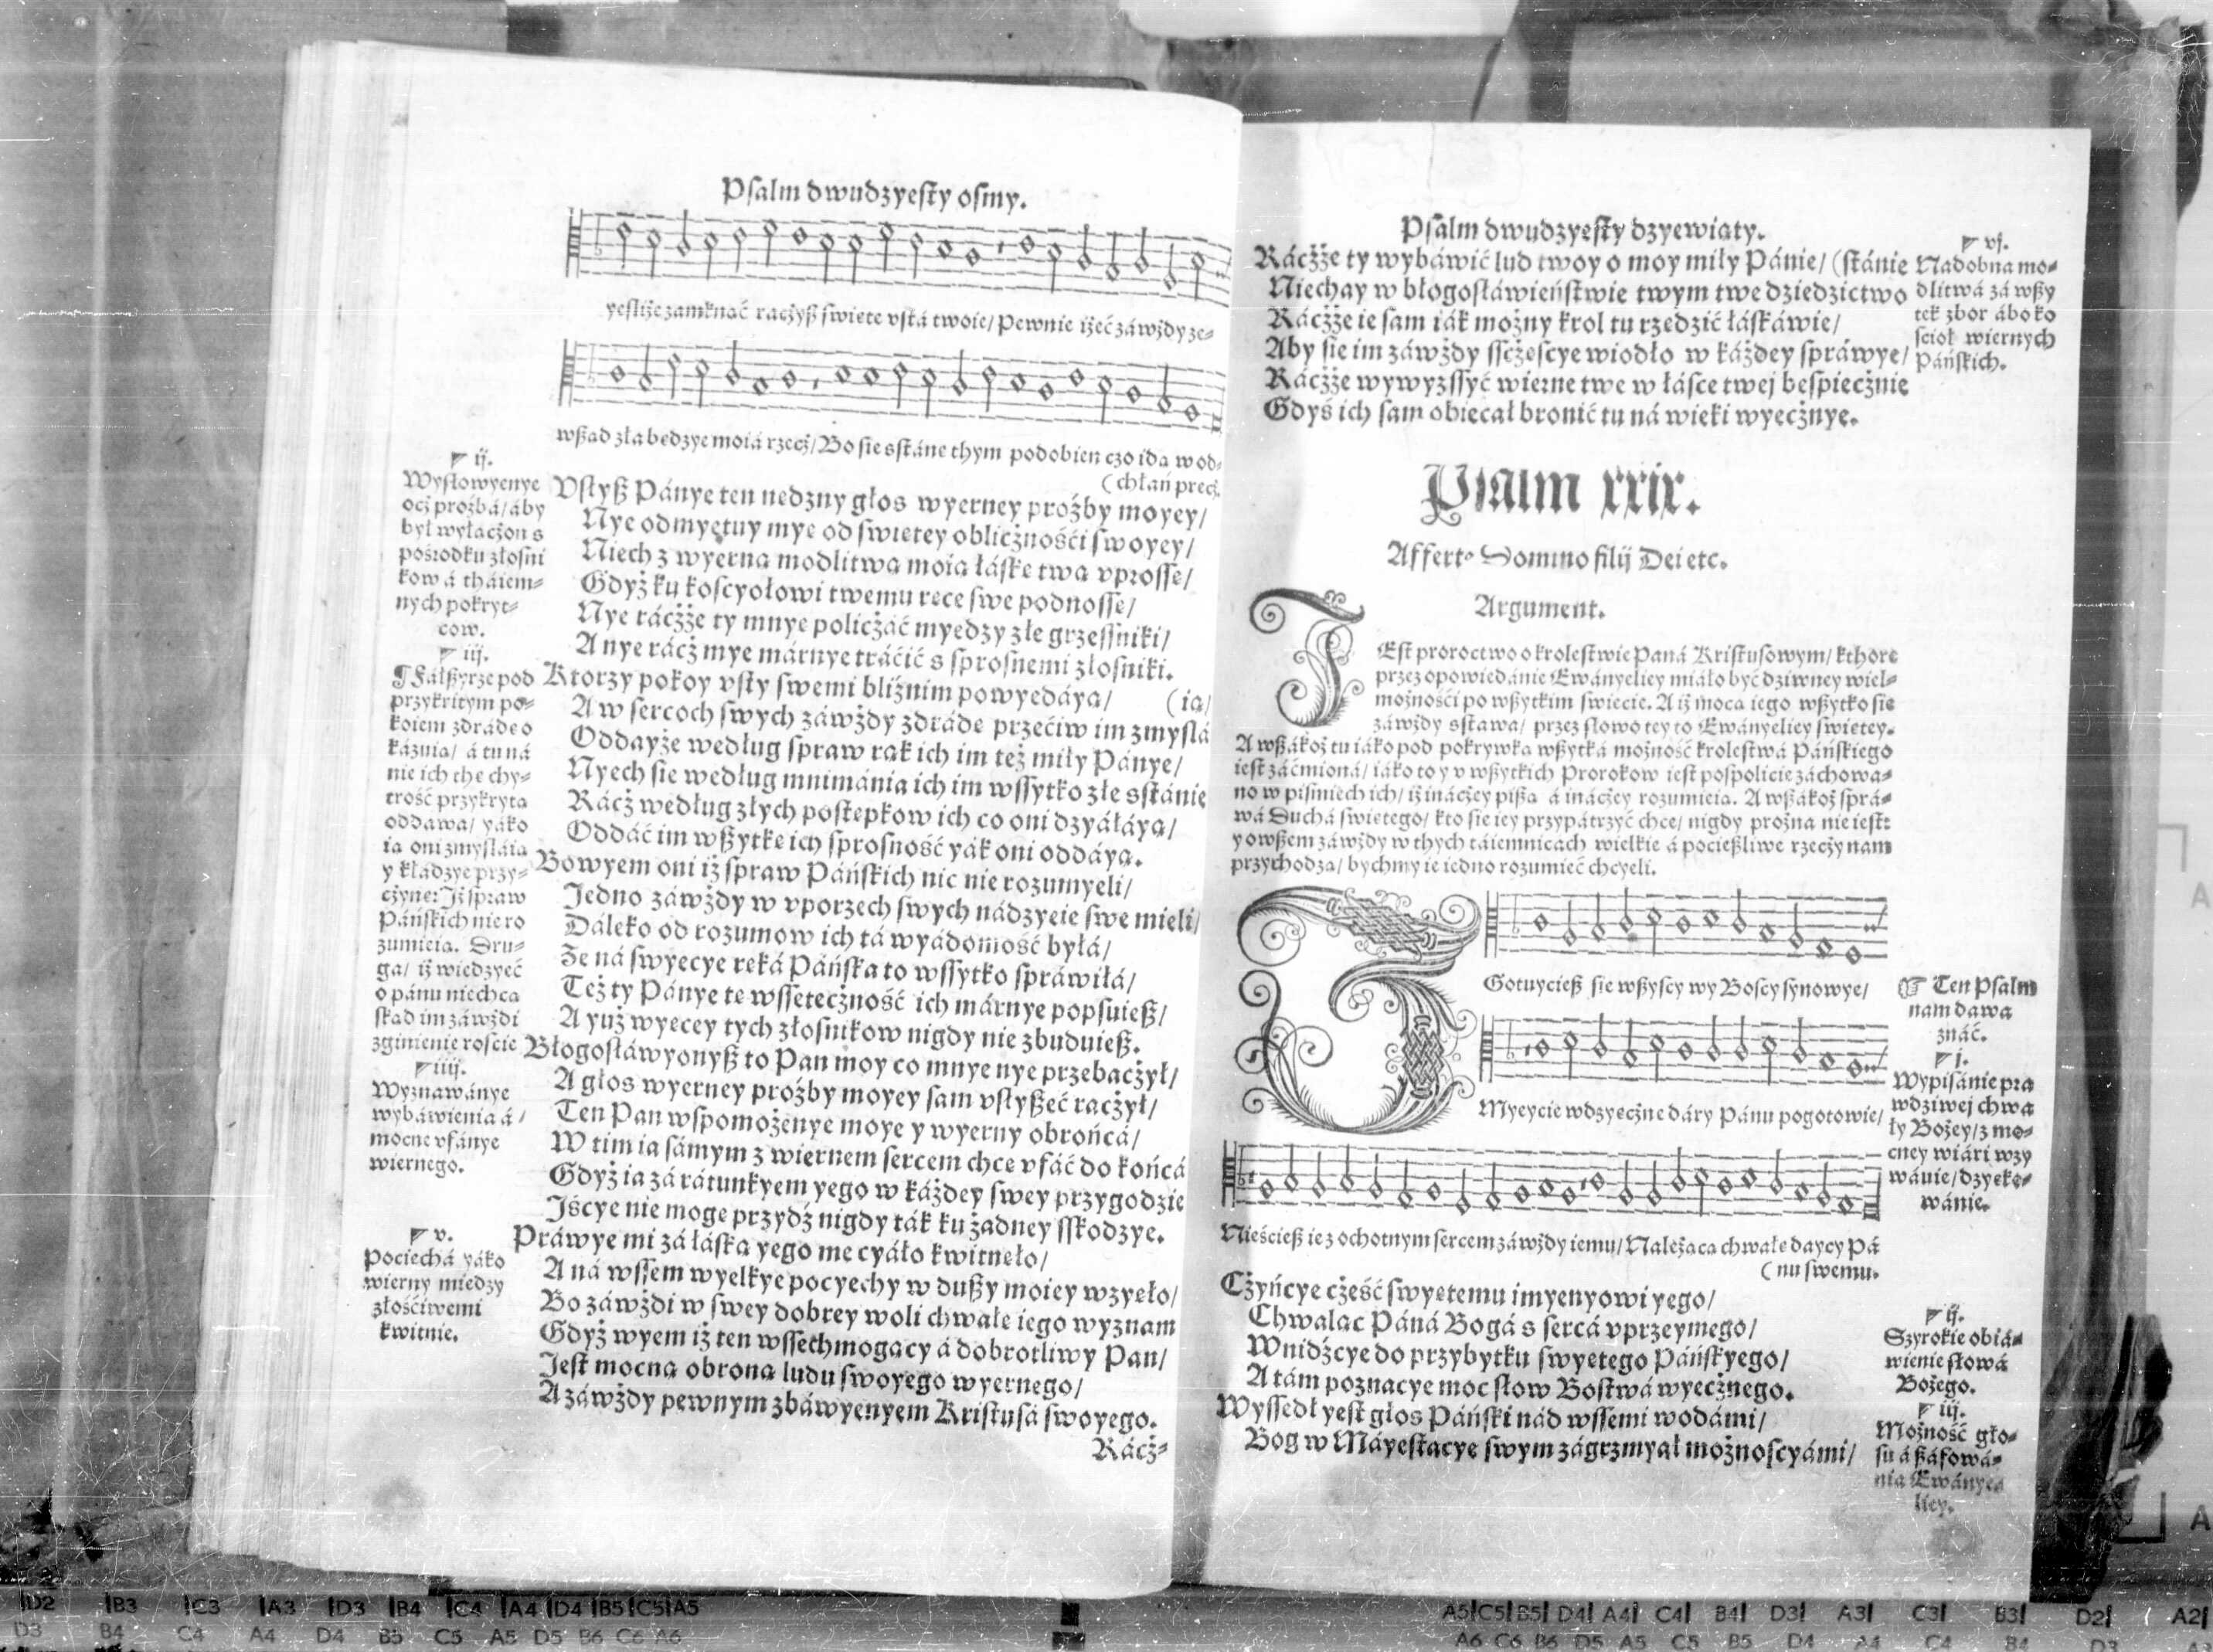 Psalm dwudzyesty osmy.
yesliże zamknąć raczysz swięte vstá twoie/ Pewnie iżeć záwżdy ze-
wßąd zła bedzye moiá rzecż/ Bo sie sstáne thym podobien czo idą w od-
(chłań precż.
ij.
Wysłowyenye
ocż proźbá/ áby
był wyłacżon s
pośrodku złosni
kow á tháiem-
nych pokryt-
cow.
iij.
¶ Fálßyrze pod
przykritym po-
koiem zdráde o
kázuia/ á tu ná
nie ich the chy-
trość przykryta
oddawa/ yáko
ia oni zmyslaia
y kładzye przy-
cżyne: Iż spraw
Páńskich nie ro
zumieia. Dru-
ga/ iż wiedzyeć
o pánu niechca
skad im záwżdi
zginienie roscie
iiij.
Wyznawánye
wybáwienia á /
mocne vfánye
wiernego.
v.
Pociechá yáko
wierny miedzy
złośćiwemi
kwitnie.
Vsłyß Pánye ten nedzny głos wyerney proźby moyey/
Nye odmyetuy mye od swietey oblicżnośći swoyey/
Niech z wyerna modlitwa moia łáske twa vprosse/
Gdyż ku koscyołowi twemu rece swe podnosse/
Nye ráczże ty mnye policżáć myedzy złe grzessniki/
A nye rácż mye márnye tráćić s sprosnemi złosniki.
Ktorzy pokoy vsty swemi bliźnim powyedáya/ (ia/
A w sercoch swych záwżdy zdráde przećiw im zmyslá
Oddayże według spraw rak ich im też miły Pánye/
Nyech sie według mnimánia ich im wssytko złe sstánie
Rácż według złych postepkow ich co oni dzyáłáya/
Oddáć im wßytke ich sprosność yák oni oddáya.
Bowyem oni iż spraw Páńskich nic nie rozumyeli/
Jedno záwżdy w vporzech swych nádzyeie swe mieli/
Dáleko od rozumow ich tá wyádomość byłá/
Ze ná swyecye reká Páńska to wssytko spráwiłá/
Też ty Pánye te wssetecżność ich márnye popsuieß/
A yuż wyecey tych złosnikow nigdy nie zbuduieß.
Błogosłáwyonyß to Pan moy co mnye nye przebacżył/
A głos wyerney proźby moyey sam vsłyßeć racżył/
Ten Pan wspomożenye moye y wyerny obrońcá/
W tim ia sámym z wiernem sercem chce vfáć do końcá
Gdyż ia zá rátunkyem yego w káżdey swey przygodzie
Jścye nie moge przydź nigdy ták ku żadney sskodzye.
Práwye mi zá łáska yego me cyáło kwitneło/
A ná wssem wyelkye pocyechy w dußy moiey wzyeło/
Bo záwżdi w swey dobrey woli chwałe iego wyznam
Gdyż wyem iż ten wssechmogacy á dobrotliwy Pan/
Jest mocna obrona ludu swoyego wyernego/
A záwżdy pewnym zbáwyenyem Kristusá swoyego.
Rácż-
Psalm dwudzyesty dzyewiaty.
Ráczże ty wybáwić lud twoy o moy miły Pánie/ (stánie
Niechay w błogosłáwieństwie twym twe dziedzictwo
Ráczże ie sam iák możny krol tu rzedzić łáskáwie/
Aby sie im záwżdy ssćżescye wiodło w káżdey spráwye/
Ráczże wywyzssyć wierne twe w łásce twej bespiecżnie
Gdyś ich sam obiecał bronić tu ná wieki wyecżnye.
vj.
Nadobna mo-
dlitwá zá wßy
tek zbor ábo ko
scioł wiernych
Páńskich.
Psalm xxix.
Affert Domino filij Dei etc.
Argument.
JEst proroctwo o krolestwie Paná Kristusowym/ kthore
przez opowiedánie Ewányeliey miáło być dziwney wiel-
możnośći po wßytkim swiecie. A iż moca iego wßytko sie
záwżdy sstawa/ przez słowo tey to Ewányeliey swietey.
A wßákoż tu iáko pod pokrywka wßytká możność krolestwá Páńskiego
iest záćmioná/ iáko to y v wßytkich Prorokow iest pospolicie záchowa-
no w pismiech ich/ iż inácżey pißa á inácżey rozumieia. A wßákoż sprá-
wá Duchá swietego/ kto sie iey przypátrzyć chce/ nigdy prożna nie iest:
y owßem záwżdy w thych táiemnicach wielkie á pocießliwe rzecży nam
przychodza/ bychmy ie iedno rozumieć chcyeli.
Gotuycieß sie wßyscy wy Boscy synowye/
Myeycie wdzyecżne dáry Pánu pogotowie/
Nieścieß ie z ochotnym sercem záwżdy iemu/ Należaca chwałe daycy Pá
(nu swemu.
Ten Psalm
nam dawa
znáć.
j.
Wypisánie pra
wdziwej chwa
ły Bożey/ z mo-
cney wiári wzy
wánie/ dzyeke-
wánie.
Cżyńcye cżeść swyetemu imyenyowi yego/
Chwalac Páná Bogá s sercá vprzeymego/
Wnidźcye do przybytku swyetego Páńskyego/
A tám poznacye moc słow Bostwá wyecżnego.
Wyssedł yest głos Páński nád wssemi wodámi/
Bog w Máyestacye swym zágrzmyał możnoscyámi/
ij.
Szyrokie obiá-
wienie słowá
Bożego.
iij.
Możność gło-
su á ßáfowá-
nia Ewánye-
liey.
D2 B3 C3 A3 D3 B4 C4 A4 D4 B5 C5 A5
D3 B4 C4 A4 D4 B5 C5 A5 D5 B6 C6 A6
A5 C5 B5 D4 A4 C4 B4 D3 A3 C3 B3 D2 A2
A6 C6 B6 D5 A5 C5 B5 D4 A4 C4 B4
A
A